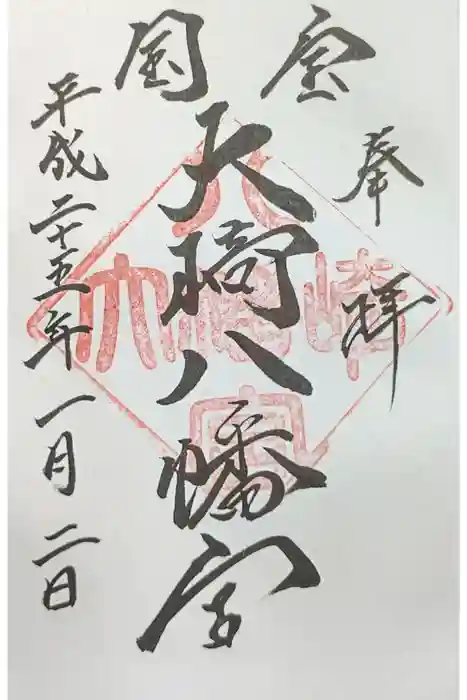 奉拝
国宝
大崎八幡宮
平成二十五年一月二日
大崎八幡宮